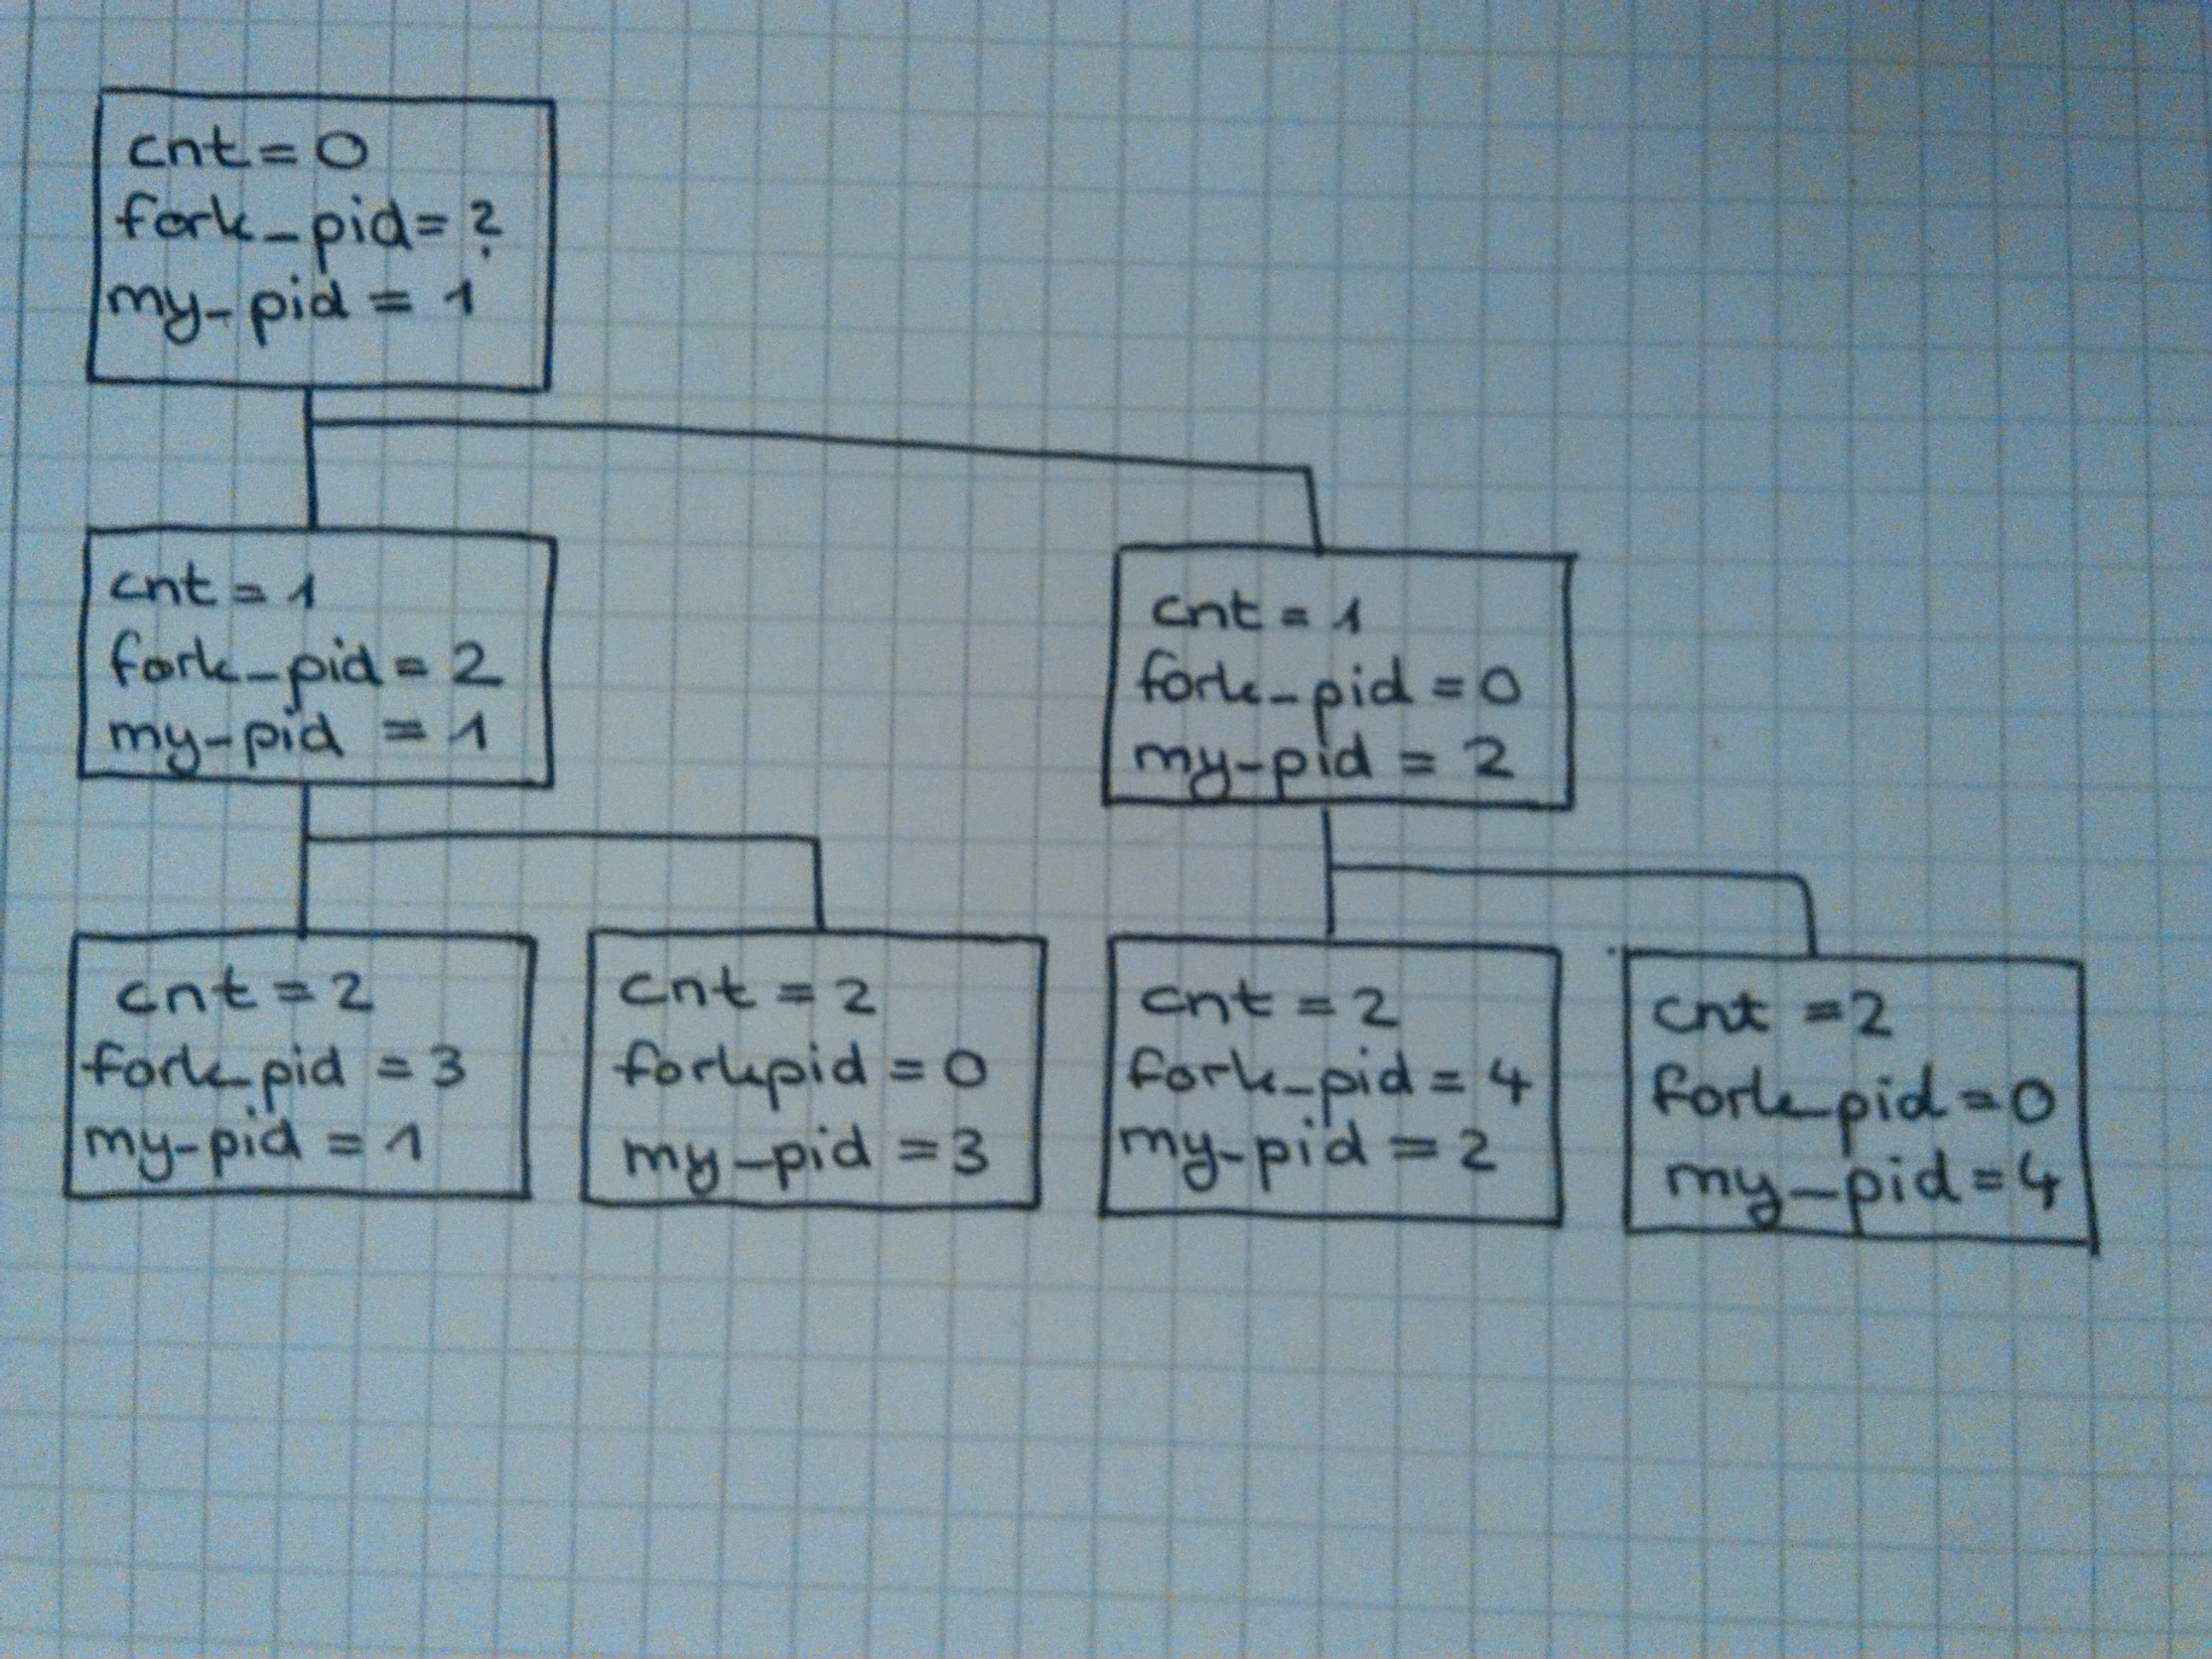 cnt = 0
fork_pid = ?
my_pid = 1
cnt = 1
fork_pid = 2
my_pid = 1
cnt = 1
fork_pid = 0
my_pid = 2
cnt = 2
fork_pid = 3
my_pid = 1
cnt = 2
forkpid = 0
my_pid = 3
cnt = 2
fork_pid = 4
my_pid = 2
cnt = 2
fork_pid = 0
my_pid = 4